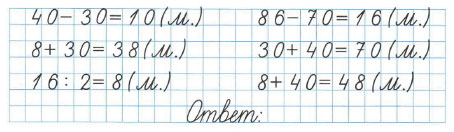 40-30=10(м.) 86-70=16(м.)
8+30=38(м.) 30+40=70(м.)
16:2=8(м.) 8+40=48(м.)
Ответ: